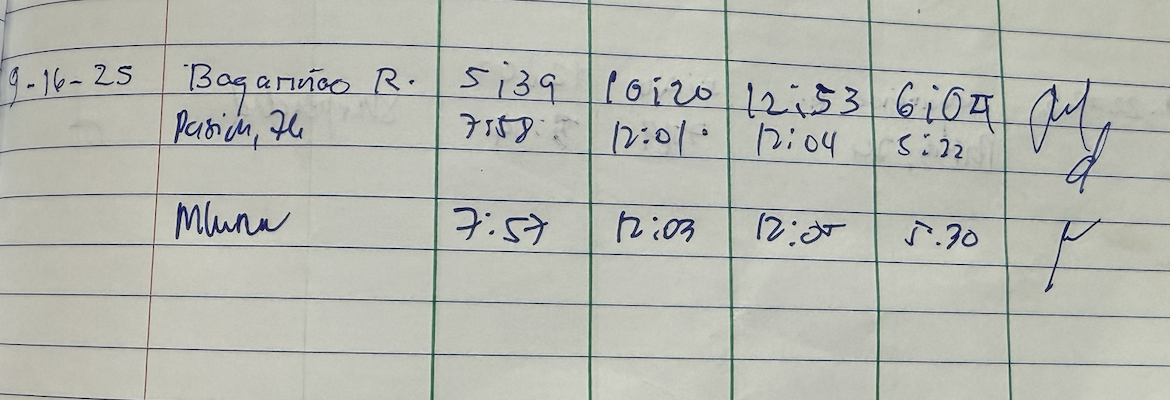 9-16-25 Bagamiao R. 5:39 10:20 12:53 6:04
7:58 12:01 12:04 5:22
7:57 12:03 12:05 5.30